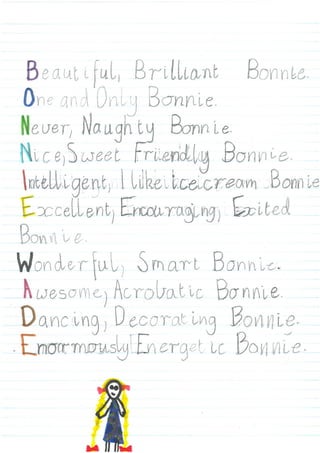 Beautiful, Brilliant Bonnie.
One and Only Bonnie.
Never, Naughty Bonnie.
Nice, Sweet Friendly Bonnie.
Intelligent, I like Icecream Bonnie
Excellent, Encouraging, Excited
Bonnie.
Wonderful, Smart Bonnie.
Awesome, Acrobatic Bonnie.
Dancing, Decorating Bonnie.
Enormously Energetic Bonnie.